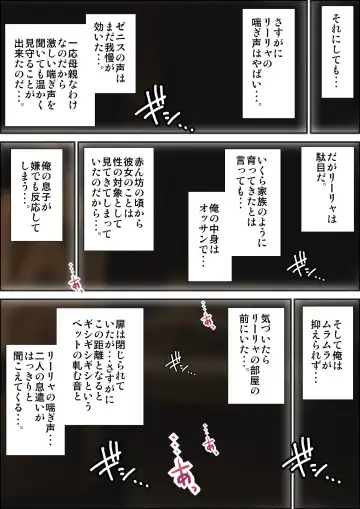 それにしても・・・
さすがに
リーリャの
喘ぎ声はやばい・・・
ゼニスの声は
まだ我慢が
効いた・・・。
一応母親なわけ
なのだから
激しい喘ぎ声を
聞いても温かく
見守ることが
出来たのだ・・・。
だがリーリャは
駄目だ。
いくら家族のように
育ってきたとは
言っても・・・
俺の中身は
オッサンで・・・
赤ん坊の頃から
彼女のことは
性の対象として
見てきてしまって
いたのだから・・・。
俺の息子が
嫌でも反応して
しまう・・・。
そして俺は
ムラムラが
抑えられず・・・
気づいたら
リーリャの部屋の
前にいた・・。
扉は閉じられて
いたが・・さすがに
この距離となると
ギシギシギシという
ベットの軋む音と
リーリャの喘ぎ声・・・
二人の息遣いが
はっきりと
聞こえてくる・・・。